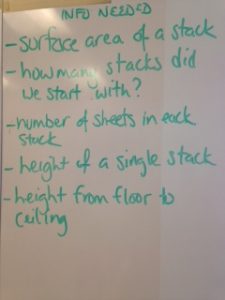 INFO NEEDED
- surface area of a stack
- how many stacks did
we start with?
- number of sheets in each
stack
- height of a single stack
- height from floor to
ceiling